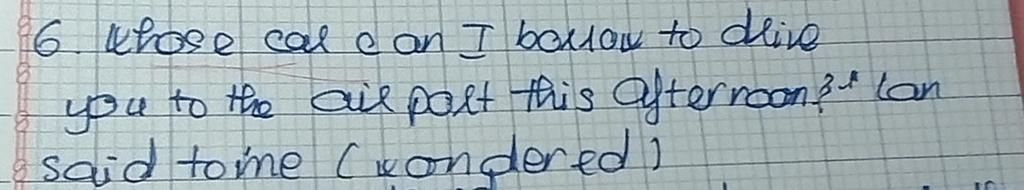 6. whose car can I borrow to drive
you to the airport this afternoon?" Lan
said to me (wondered)